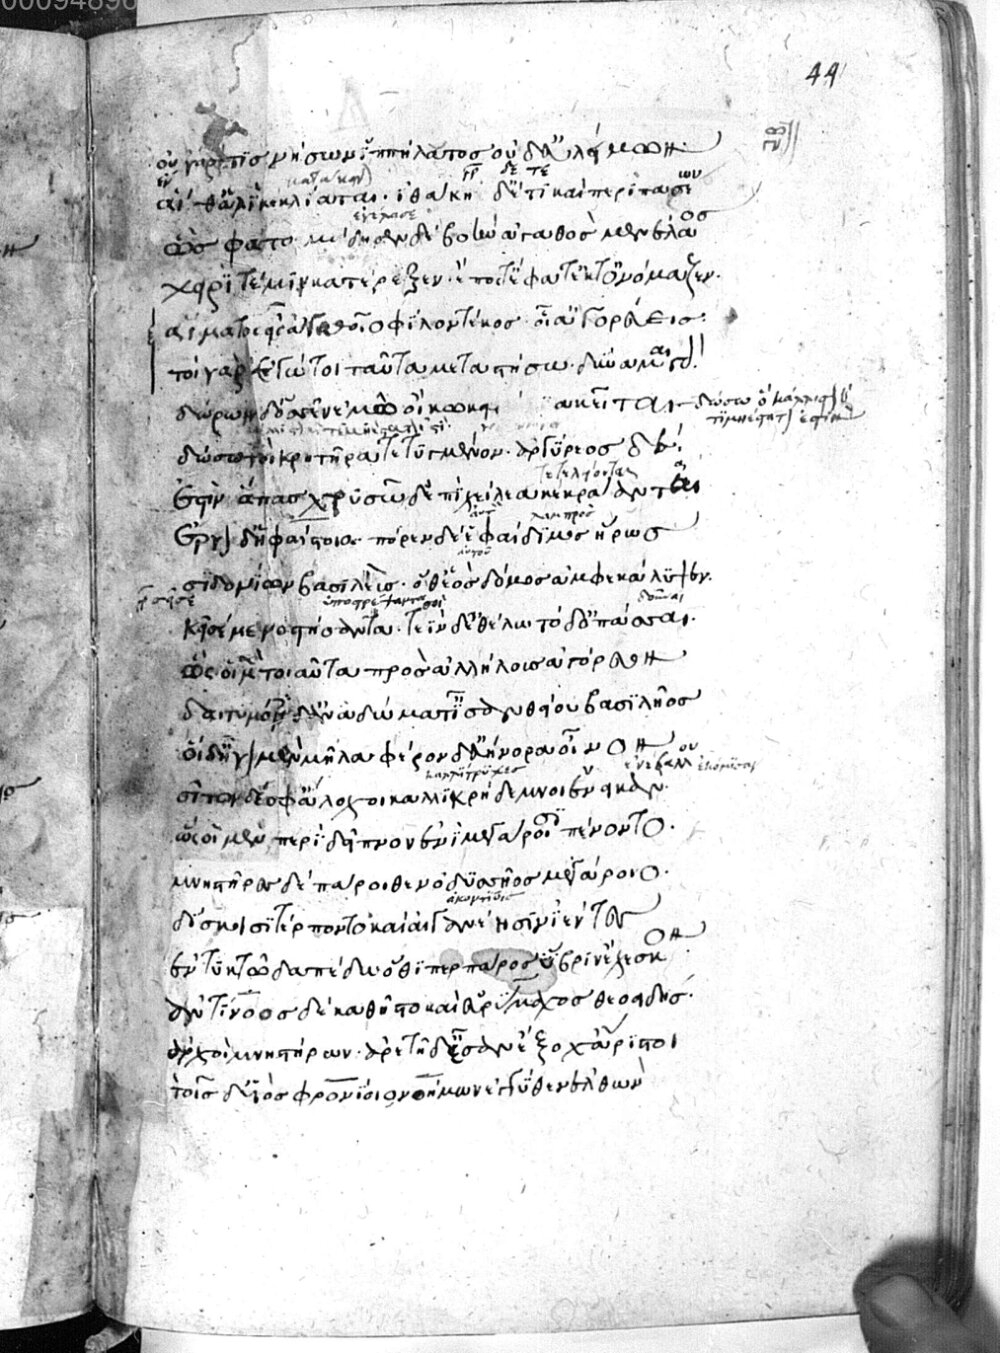 44
οὐ γάρ τις νήσων ἱππήλατος οὐδ' εὐλείμων·
αἵ θ' ἁλὶ κεκλίαται· ἰθάκη δέ τι καὶ περὶ πασέων
ἐγέλασε
ὣς φάτο· μείδησεν δὲ βοὴν ἀγαθὸς μενέλαος
χειρί τέ μιν κατέρεξεν· ἔπος τ' ἔφατ' ἔκ τ' ὀνόμαζεν·
αἵματος εἰς ἀγαθοῖο φίλον τέκος· οἷ' ἀγορεύεις·
τοὶ γὰρ ἐγώ τοι ταῦτα μεταστήσω· δύναμαι γάρ
δώρων δ' ὅσσ' ἐν ἐμῷ οἴκῳ κει κεῖται
δώσω ὃ κάλλιστ
δώσω τοι κρητῆρα τετυγμένον· ἀργύρεος δὲ
ἔστιν ἅπας χρυσῷ δ' ἐπὶ χείλεα κεκράανται
λαμπρὸς
ἔργον δ' ἡφαίστοιο· πόρεν δέ ἑ φαίδιμος ἥρως
αὐτοῦ
σιδονίων βασιλεὺς· ὅθ' ἑὸς δόμος ἀμφεκάλυψεν·
ὑποστρέψαντα σοὶ δοῦναι
κεῖσέ με νοστήσαντα· τεῒν δ' ἐθέλω τόδ' ὀπάσσαι·
ὣς οἱ μὲν τοιαῦτα πρὸς ἀλλήλους ἀγόρευον
δαιτυμόνες δ' ἐς δώματ' ἴσαν θείου βασιλῆος
οἱ δ' ἦγον μὲν μῆλα φέρον δ' εὐήνορα οἶνον
σῖτον δέ σφ' ἄλοχοι καλλικρήδεμνοι ἔνεικαν·
ὣς οἱ μὲν περὶ δεῖπνον ἐνὶ μεγάροισι πένοντο·
μνηστῆρες δὲ πάροιθεν ὀδυσσῆος μεγάροιο·
δίσκοισι τέρποντο καὶ αἰγανέησιν ἱέντες
ἐν τυκτῷ δαπέδῳ ὅθι περ πάρος ὕβριν ἔχεσκον
ἀντίνοος δὲ καθῆστο καὶ εὐρύμαχος θεοειδής·
ἀρχοὶ μνηστήρων· ἀρετῇ δ' ἔσαν ἔξοχ' ἄριστοι
τοῖς δ' υἱὸς φρονίοιο νοήμων ἐγγύθεν ἐλθὼν